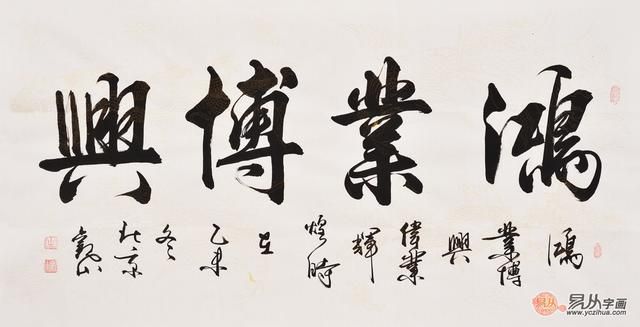 鴻業博興
鴻
業博
興
偉業
輝
煌時
在
乙未
冬
京
山
易从
易从字画
www.yczihua.com